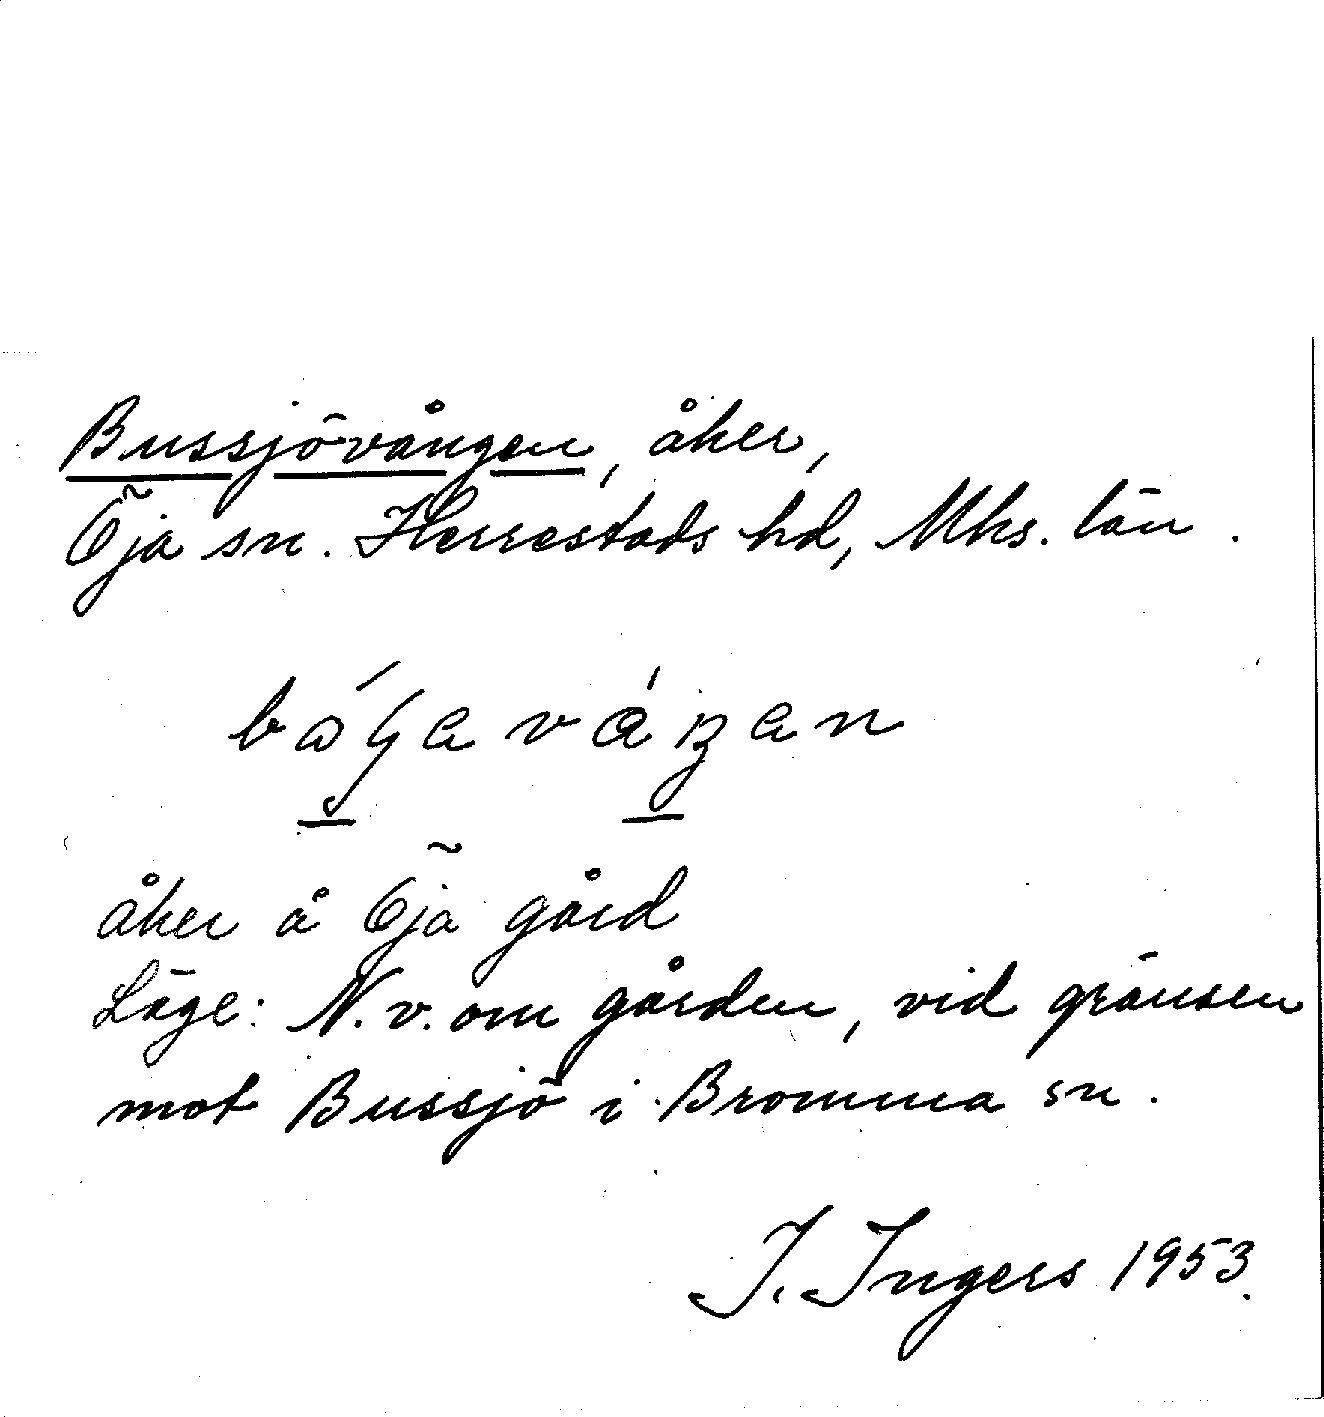 Bussjövången, åker,
Öja sn. Herrestads hd, Mhs. län.
åker å Öja gård
Läge: N.v. om gården, vid gränsen
mot Bussjö i Bromma sn.
I. Ingers 1953.